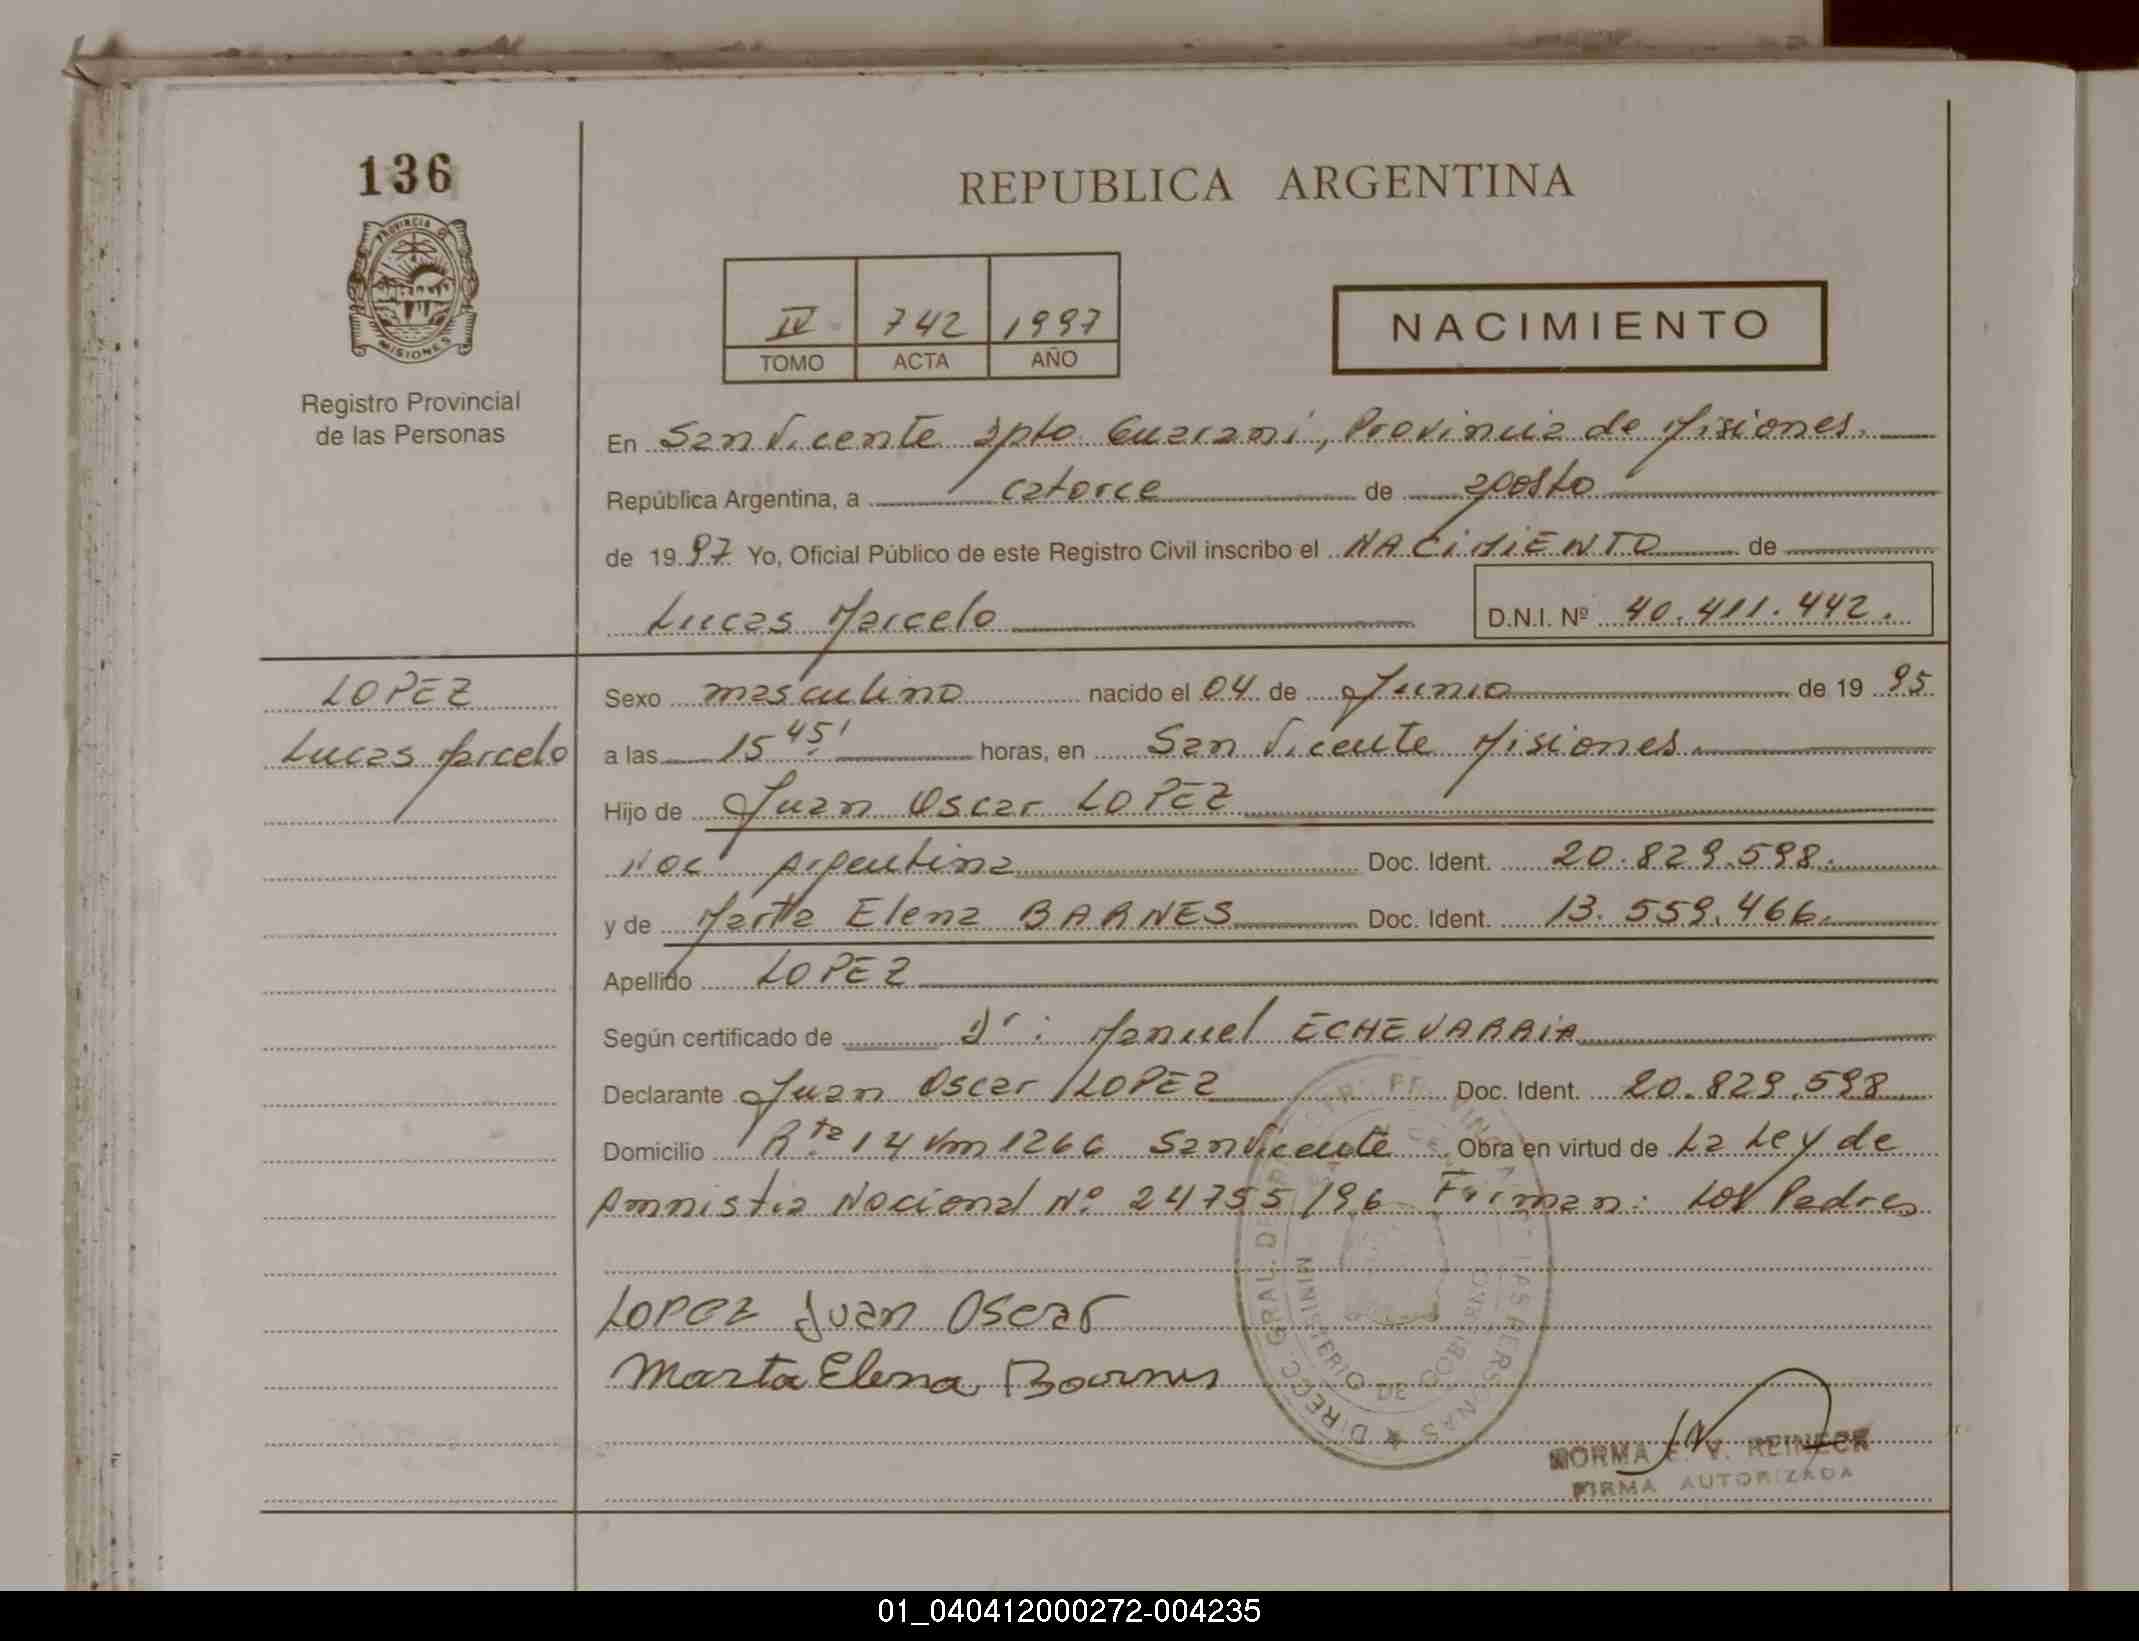 136
PROVINCIA DE
MISIONES
Registro Provincial
de las Personas
REPUBLICA ARGENTINA
IV 742 1997
TOMO ACTA AÑO
NACIMIENTO
En San Vicente Dpto. Guarani, Provincia de Misiones.
República Argentina, a catorce de agosto
de 1997 Yo, Oficial Público de este Registro Civil inscribo el NACIMIENTO de
Lucas Marcelo D.N.I. Nº 40.411.442.
LOPEZ
Lucas Marcelo
Sexo masculino nacido el 04 de Junio de 1995
a las 15 45' horas, en San Vicente Misiones.
Hijo de Juan Oscar LOPEZ
Nac Argentina Doc. Ident. 20.829.598.
y de Marta Elena BARNES Doc. Ident. 13.559.466.
Apellido LOPEZ
Según certificado de Dr: Manuel ECHEVARRIA
Declarante Juan Oscar LOPEZ Doc. Ident. 20.829.598
Domicilio Rta 14 Km 1266 San Vicente Obra en virtud de La Ley de
Amnistia Nacional Nº 24755/96 Firman: Los Padres
LOPEZ Juan Oscar
Marta Elena Barnes
DIRECC. GRAL. DE
MINISTERIO DE GOBIERNO
NORMA E. V. REINECK
FIRMA AUTORIZADA
01_040412000272-004235